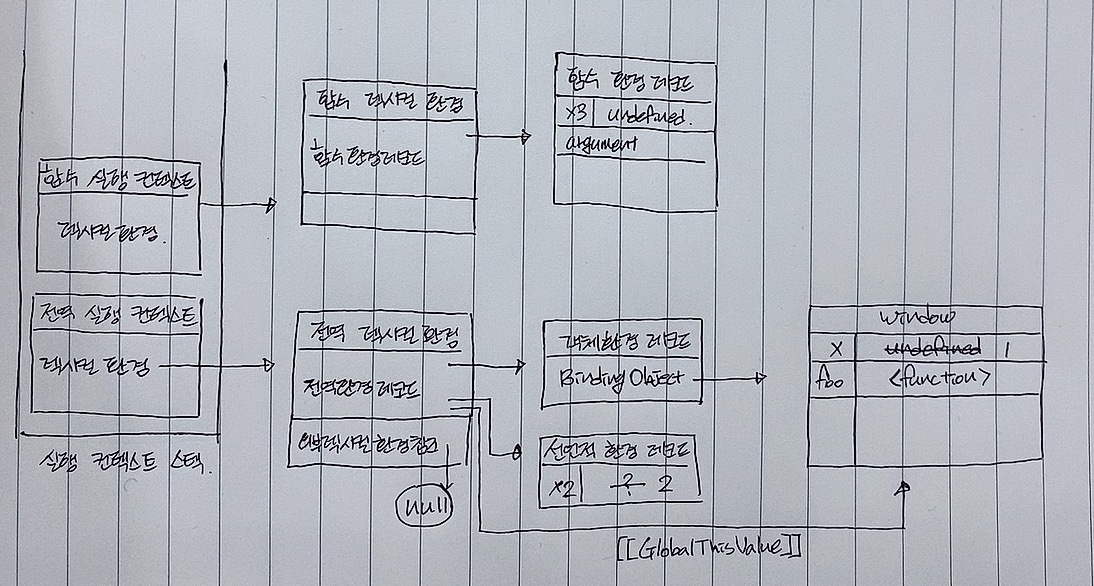 함수 실행 컨텍스트
렉시컬 환경.
전역 실행 컨텍스트
렉시컬 환경
실행 컨텍스트 스택.
함수 렉시컬 환경
함수 환경 레코드
함수 환경 레코드
x3 undefined.
argument
전역 렉시컬 환경
전역 환경 레코드
외부 렉시컬 환경 참조
null
객체 환경 레코드
Binding Object
선언적 환경 레코드
x2 ? 2
window
x undefined 1
foo <function>
[[GlobalThisValue]]